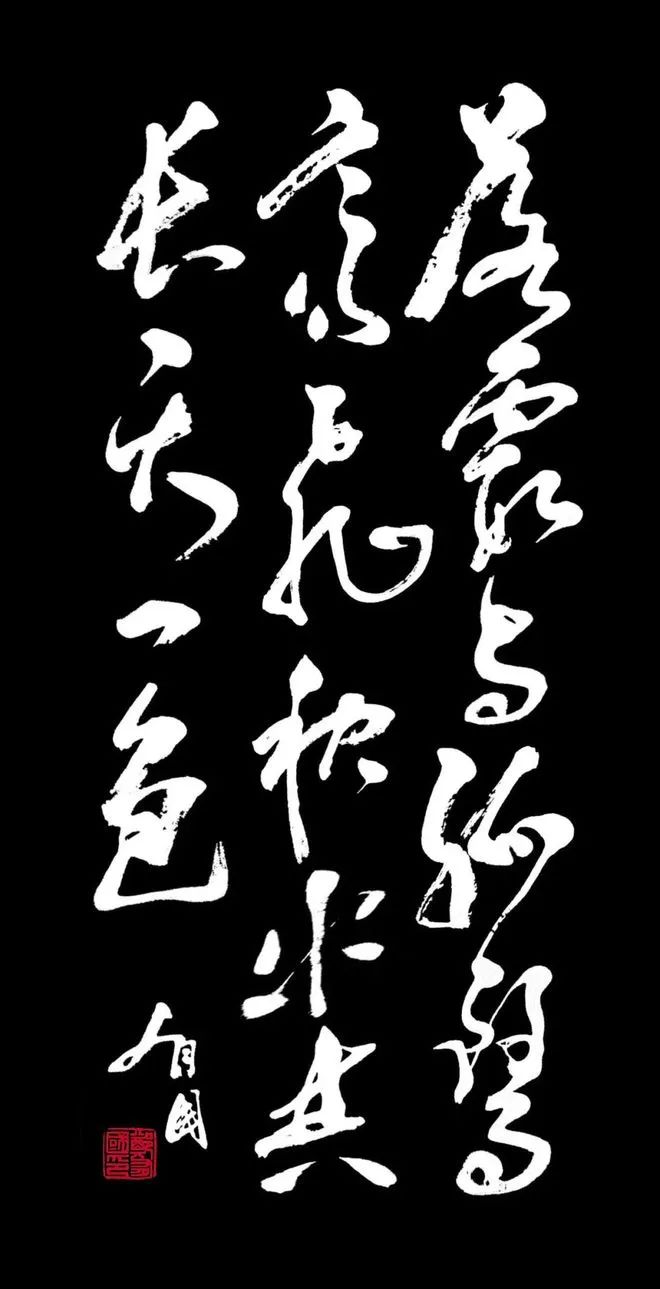 落霞与孤鹜
齐飞秋水共
长天一色
有国